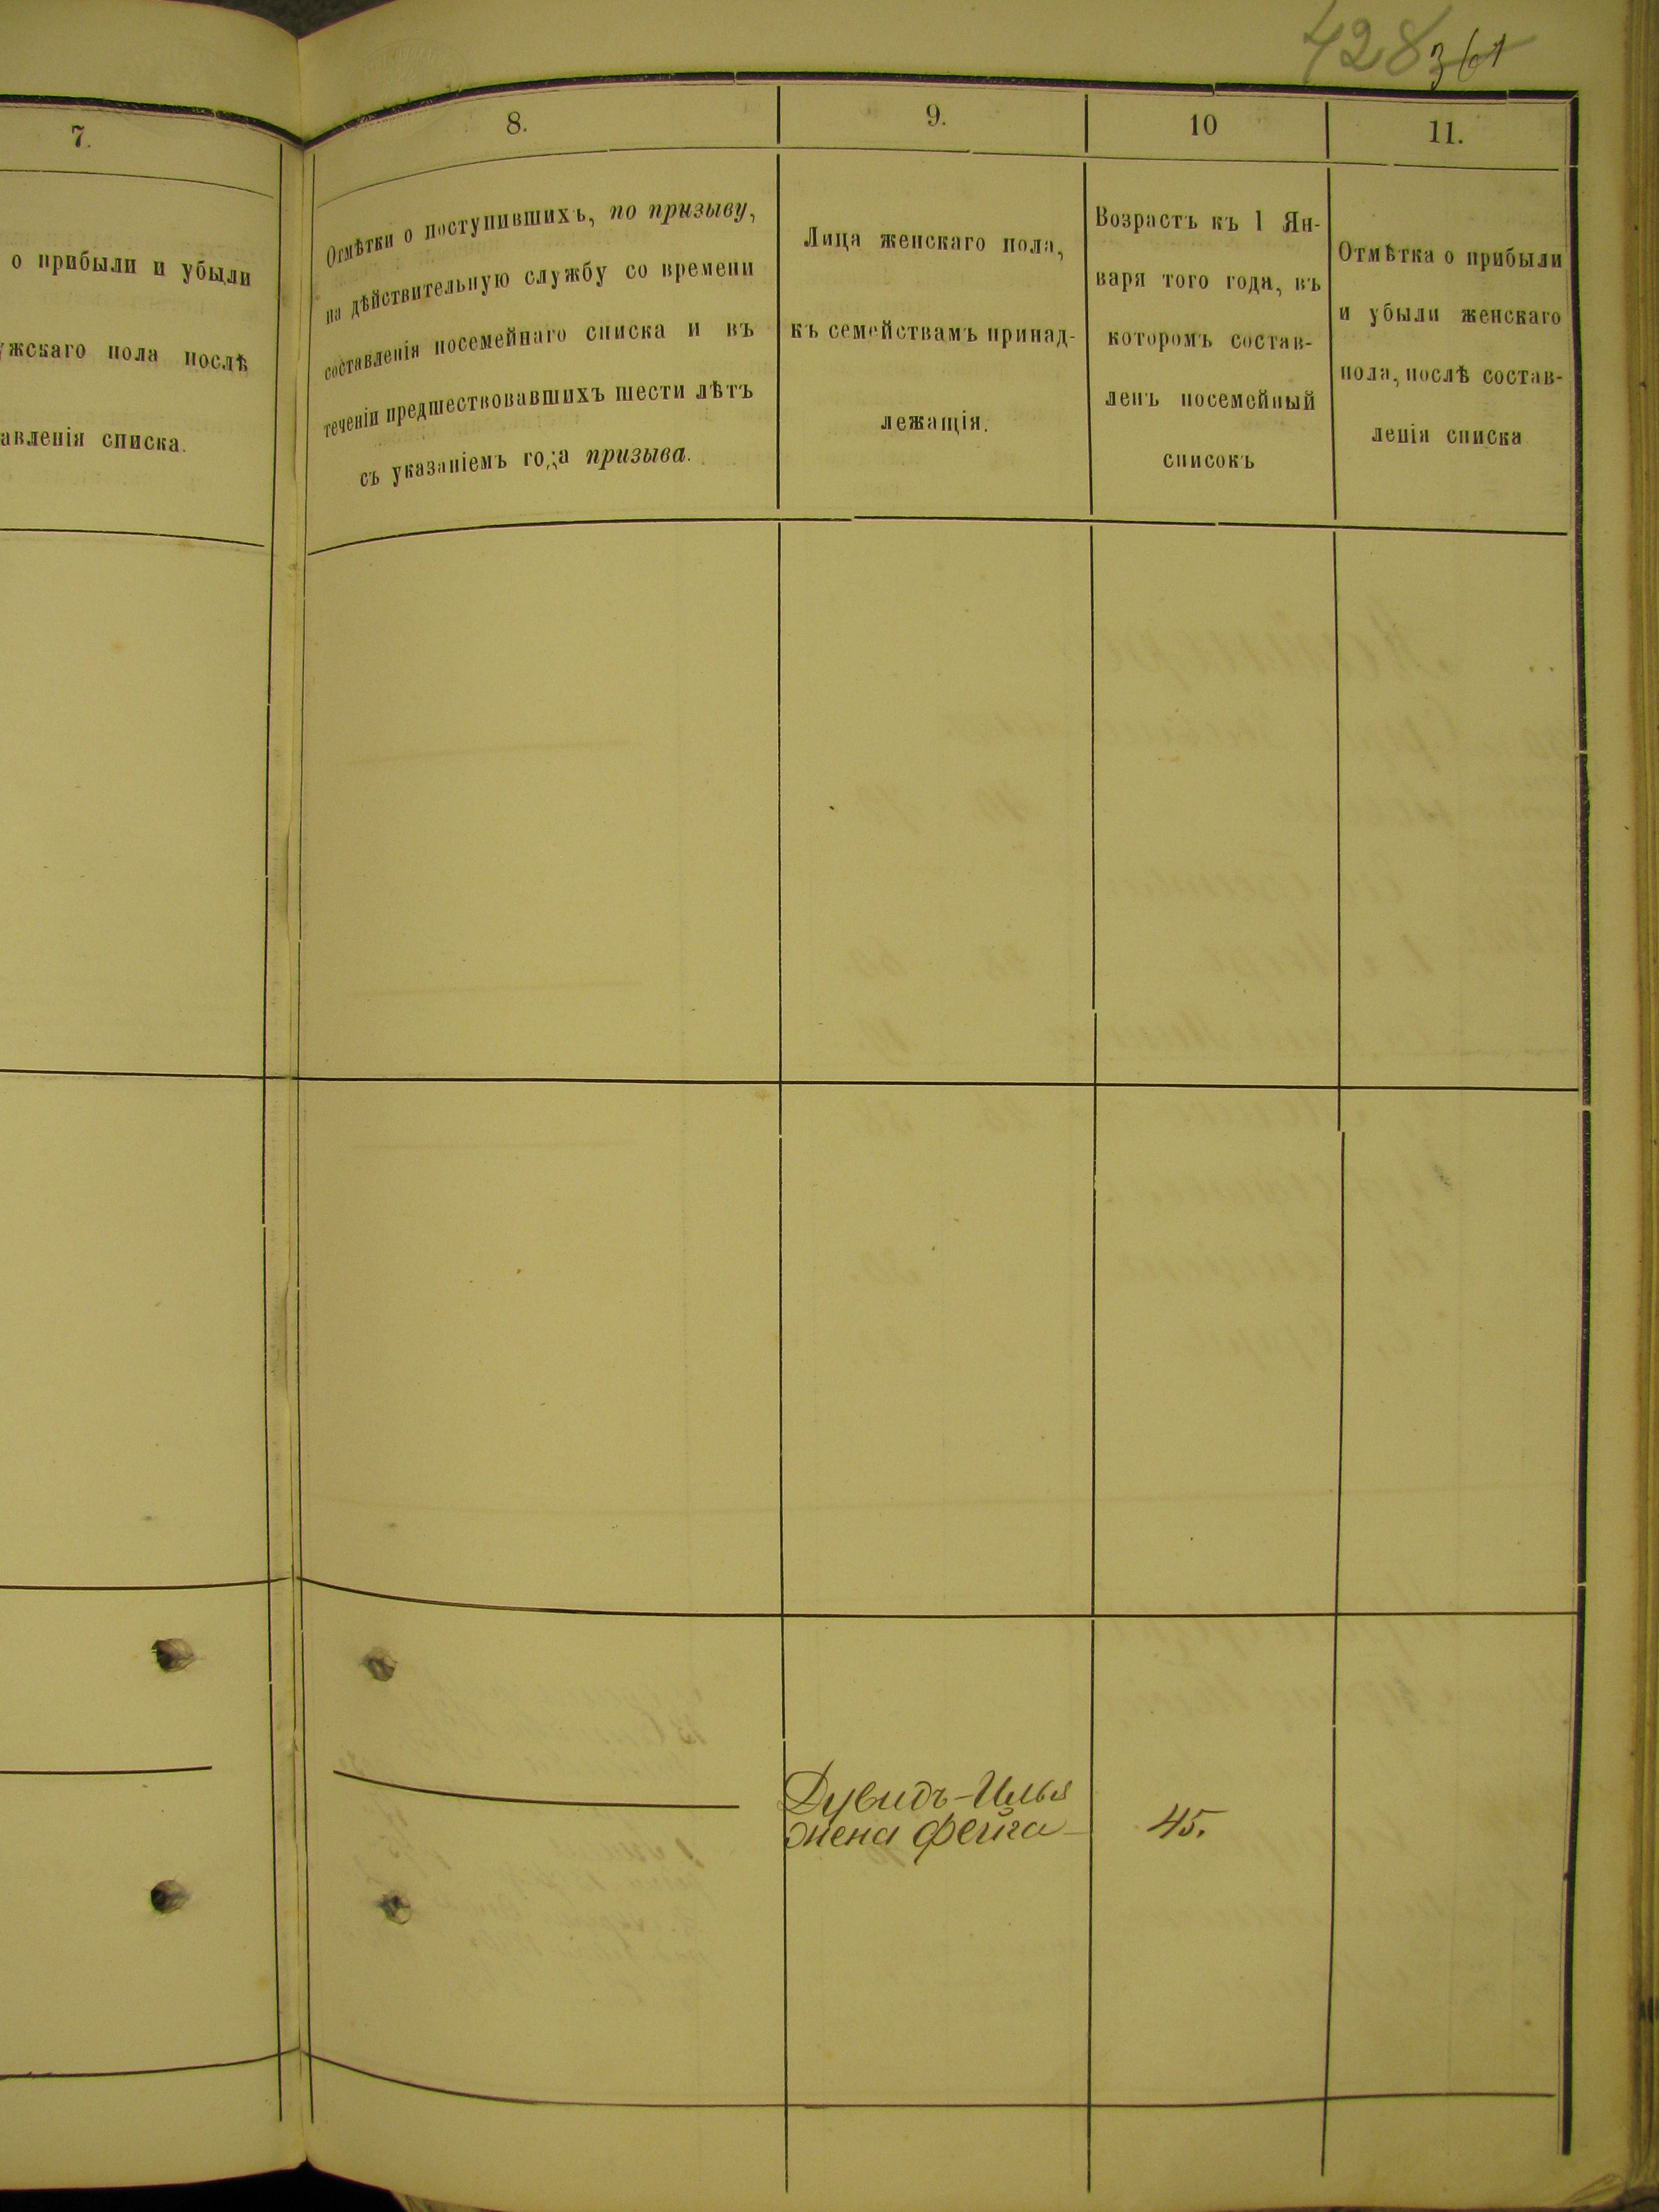 428 361
7.
о прибыли и убыли
жскаго пола послѣ
авленія списка.
8.
Отмѣтки о поступившихъ, по призыву,
на дѣйствительную службу со времени
составленія посемейнаго списка и въ
теченіи предшествовавшихъ шести лѣтъ
съ указаніемъ года призыва.
9.
Лица женскаго пола,
къ семействамъ принад-
лежащія.
10
Возрастъ къ 1 Ян-
варя того года, въ
которомъ состав-
ленъ посемейный
списокъ
11.
Отмѣтка о прибыли
и убыли женскаго
пола, послѣ состав-
ленія списка
Дувидъ-Илья
жена Фейга
45.